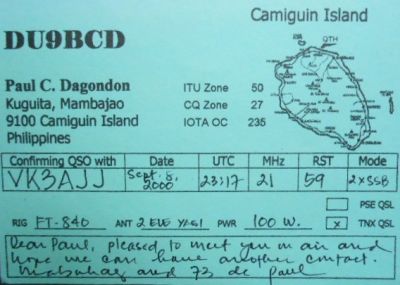 Camiguin Island
DU9BCD
QTH
Paul C. Dagondon ITU Zone 50
Kuguita, Mambajao CQ Zone 27
9100 Camiguin Island IOTA OC 235
Philippines
Confirming QSO with Date UTC MHz RST Mode
VK3AJJ Sept. 8, 2000 23:17 21 59 2xSSB
PSE QSL
RIG FT-840 ANT 2 ELE YAGI PWR 100 W. x TNX QSL
Dear Paul, pleased to meet you on air and
hope we can have another contact.
Mabuhay and 73 de Paul